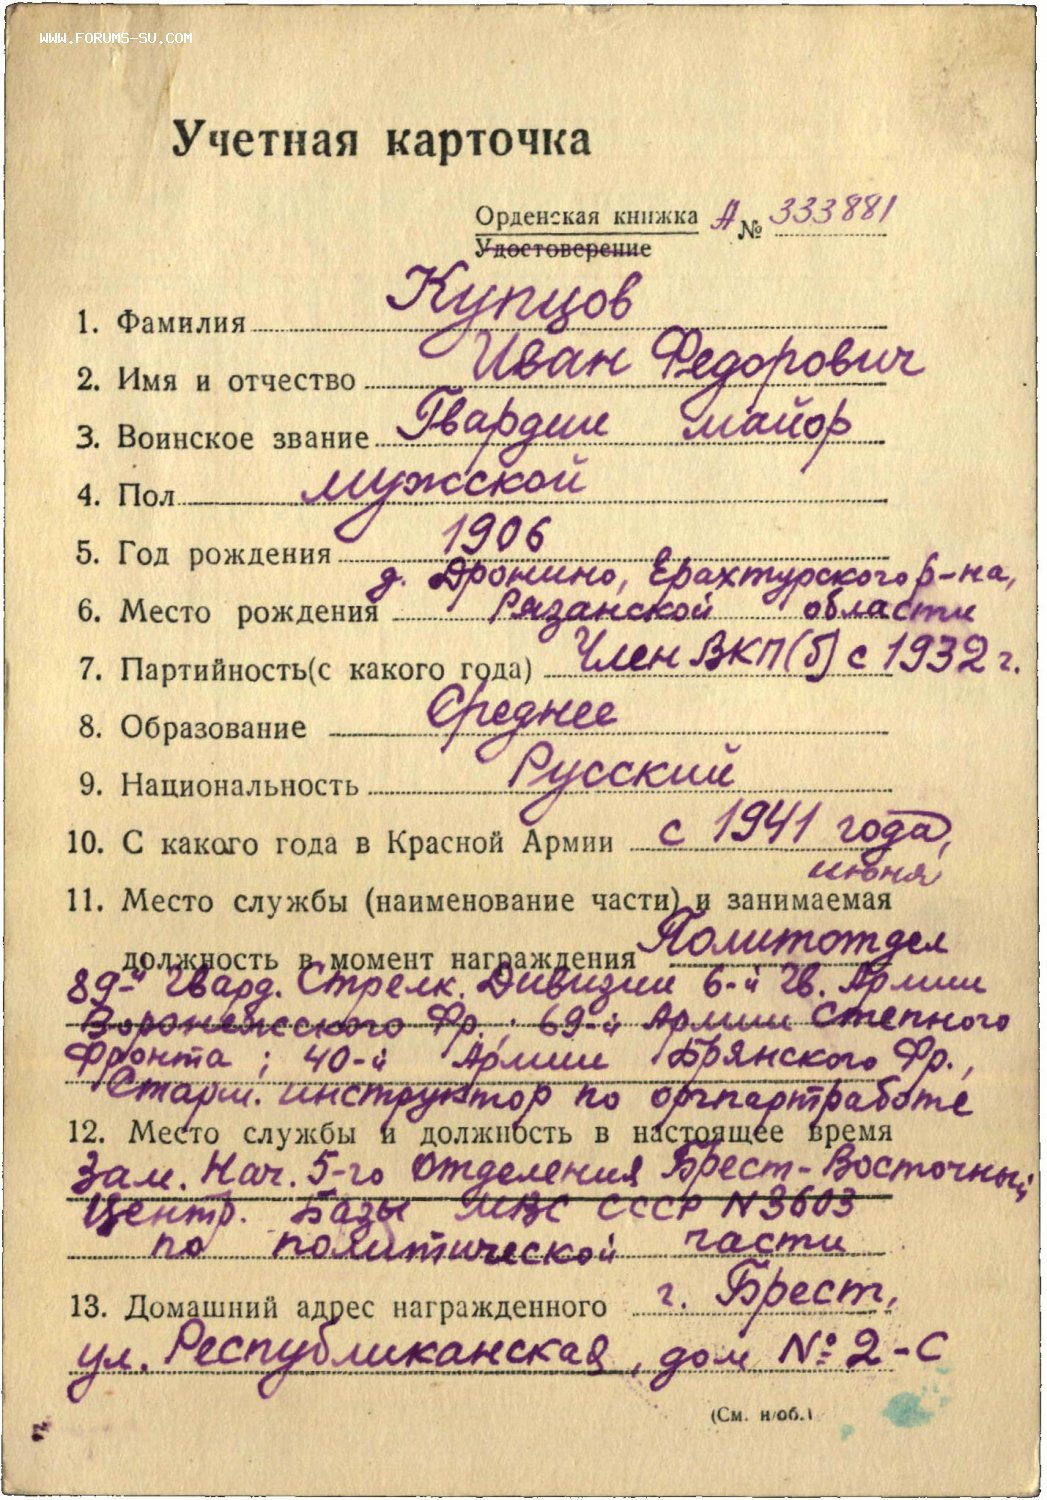 WWW.FORUMS-SU.COM
Учетная карточка
Орденская книжка А № 333881
Удостоверение
1. Фамилия Купцов
2. Имя и отчество Иван Федорович
3. Воинское звание Гвардии майор
4. Пол мужской
5. Год рождения 1906
д. Дронино, Ерахтурского р-на,
6. Место рождения Рязанской области
7. Партийность(с какого года) Член ВКП(б) с 1932 г.
8. Образование Среднее
9. Национальность Русский
10. С какого года в Красной Армии с 1941 года,
июня
11. Место службы (наименование части) и занимаемая
должность в момент награждения Политотдел
89-й Гвард. Стрелк. Дивизии 6-й Гв. Армии
Воронежского Фр.; 69-й Армии Степного
Фронта; 40-й Армии Брянского Фр.,
Старш. инструктор по оргпартработе
12. Место службы и должность в настоящее время
Зам. Нач. 5-го Отделения Брест-Восточный
Центр. Базы МВС СССР N 3603
по политической части
13. Домашний адрес награжденного г. Брест,
ул. Республиканская, дом № 2-С
(См. н/об.)